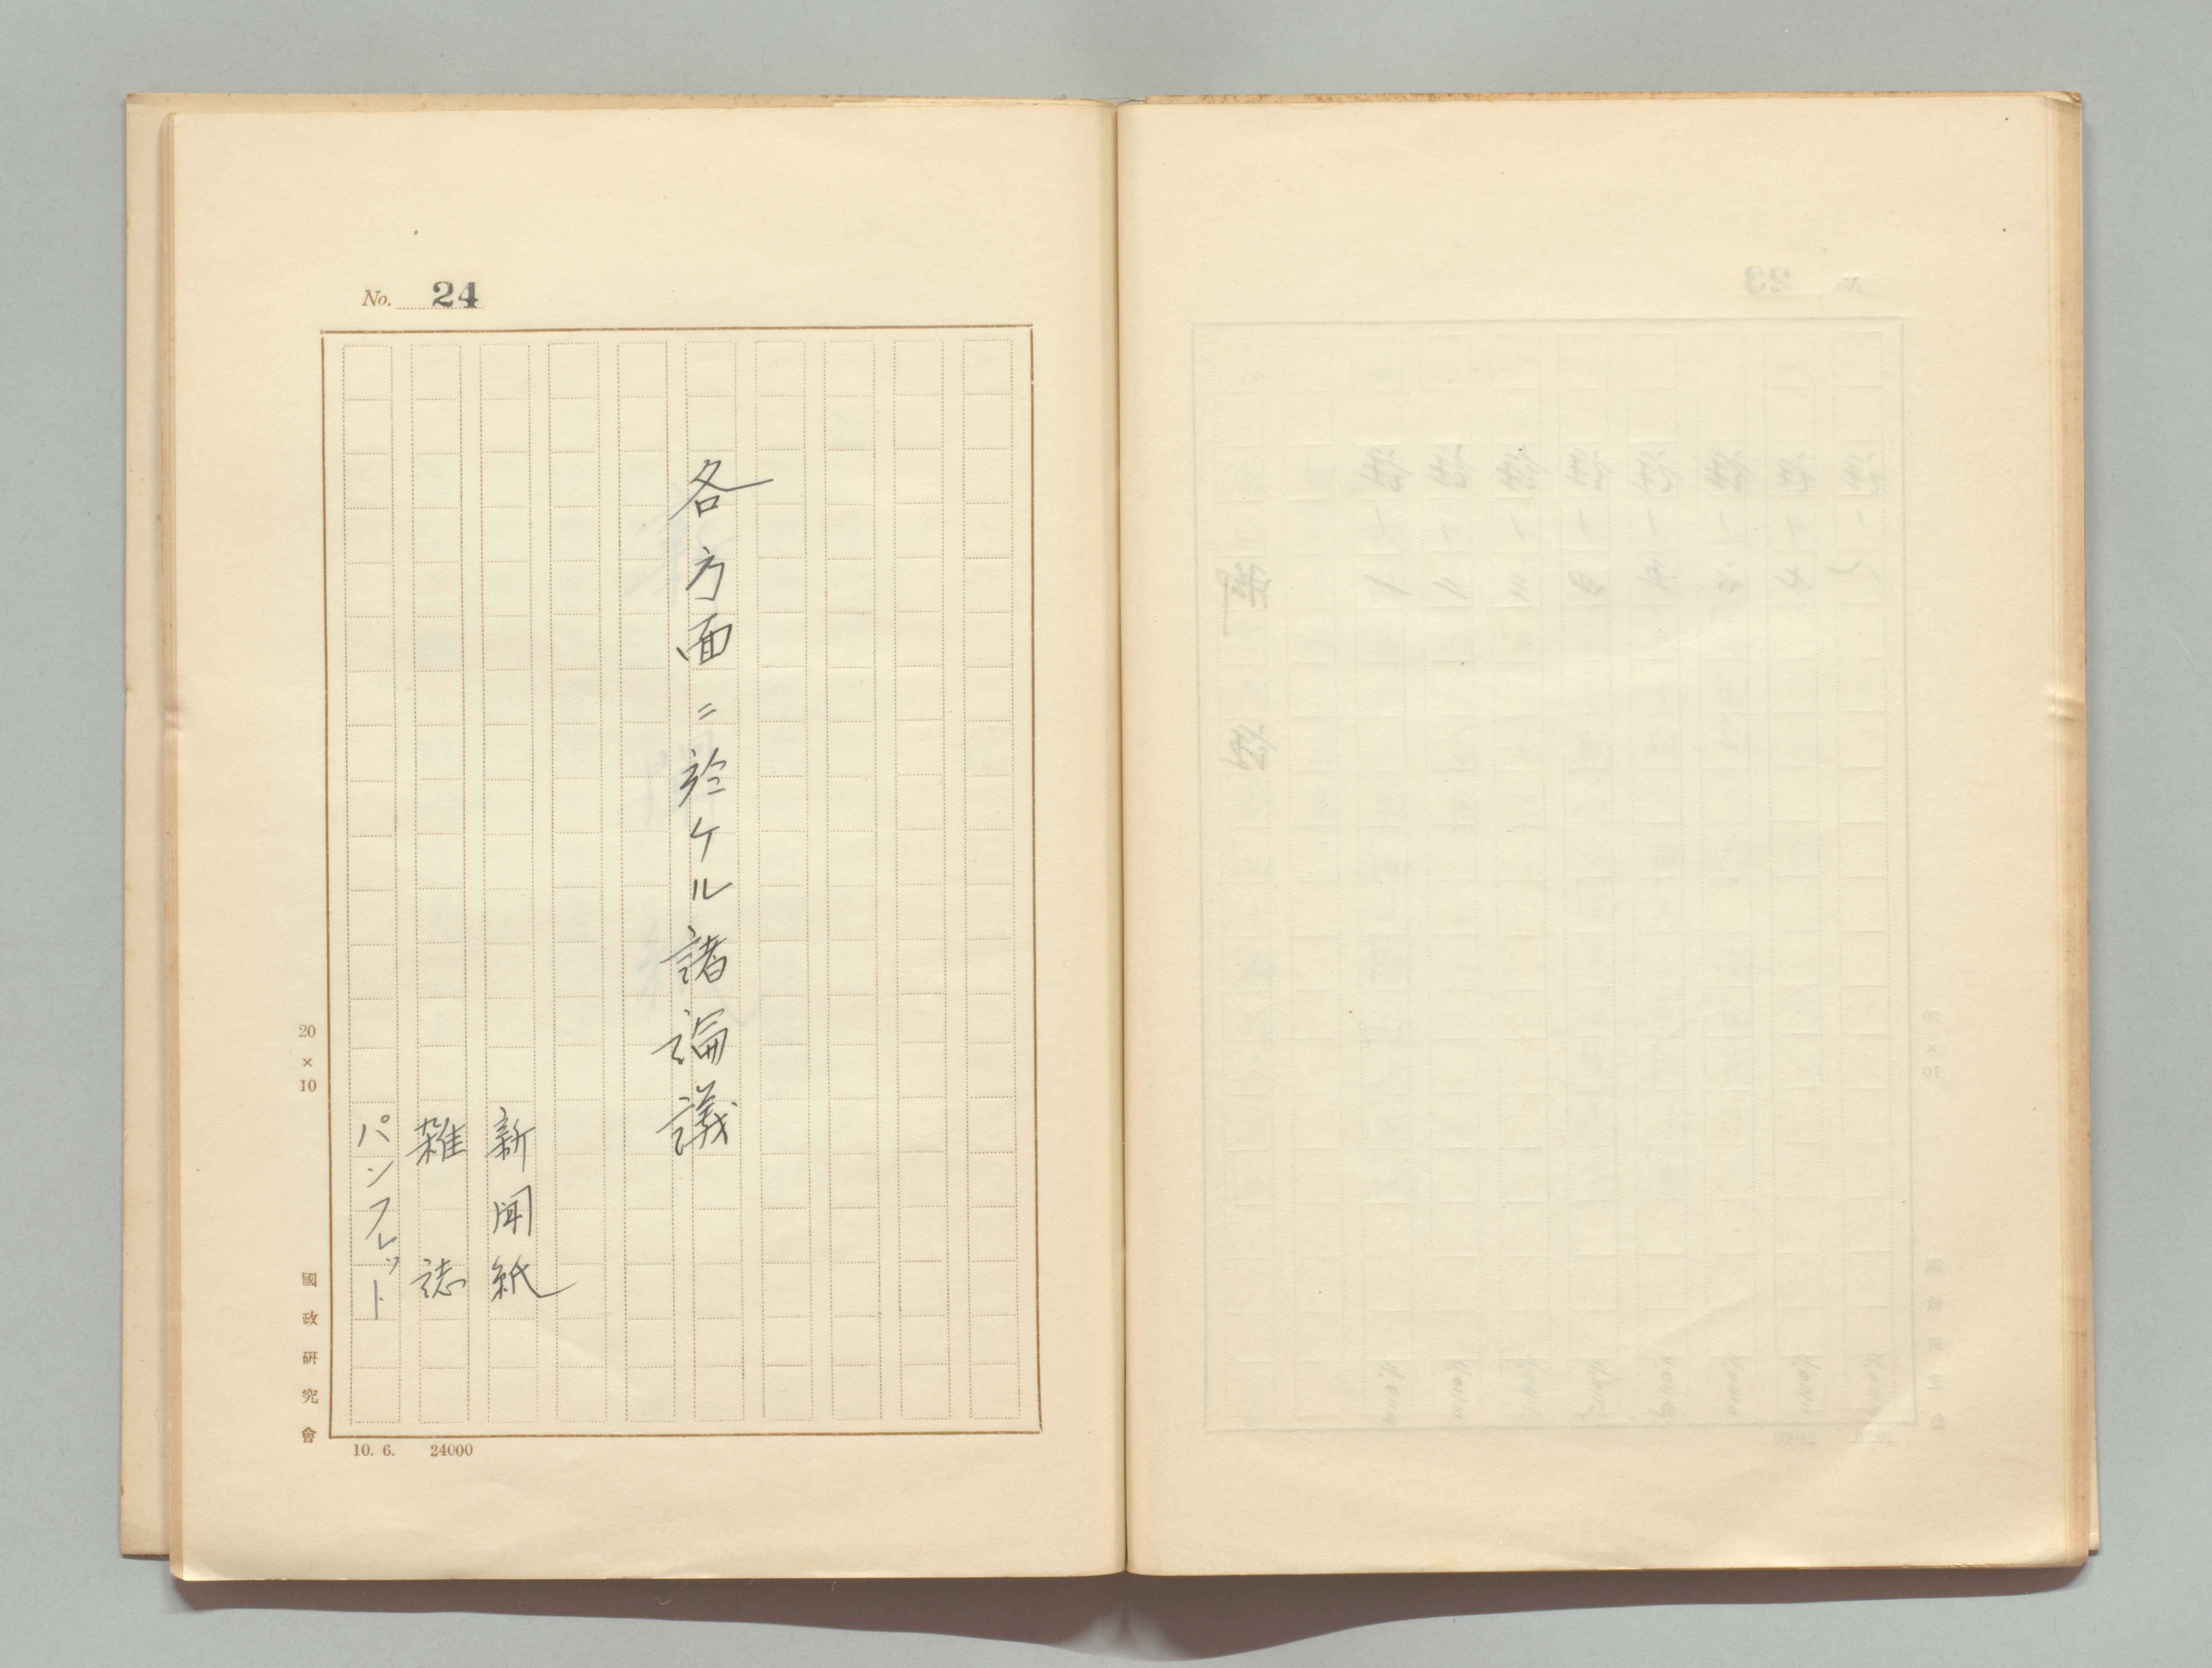 No. 24
各方面ニ於ケル諸論議
新聞紙
雑誌
パンフレット
20×10
國政研究會
10. 6. 24000